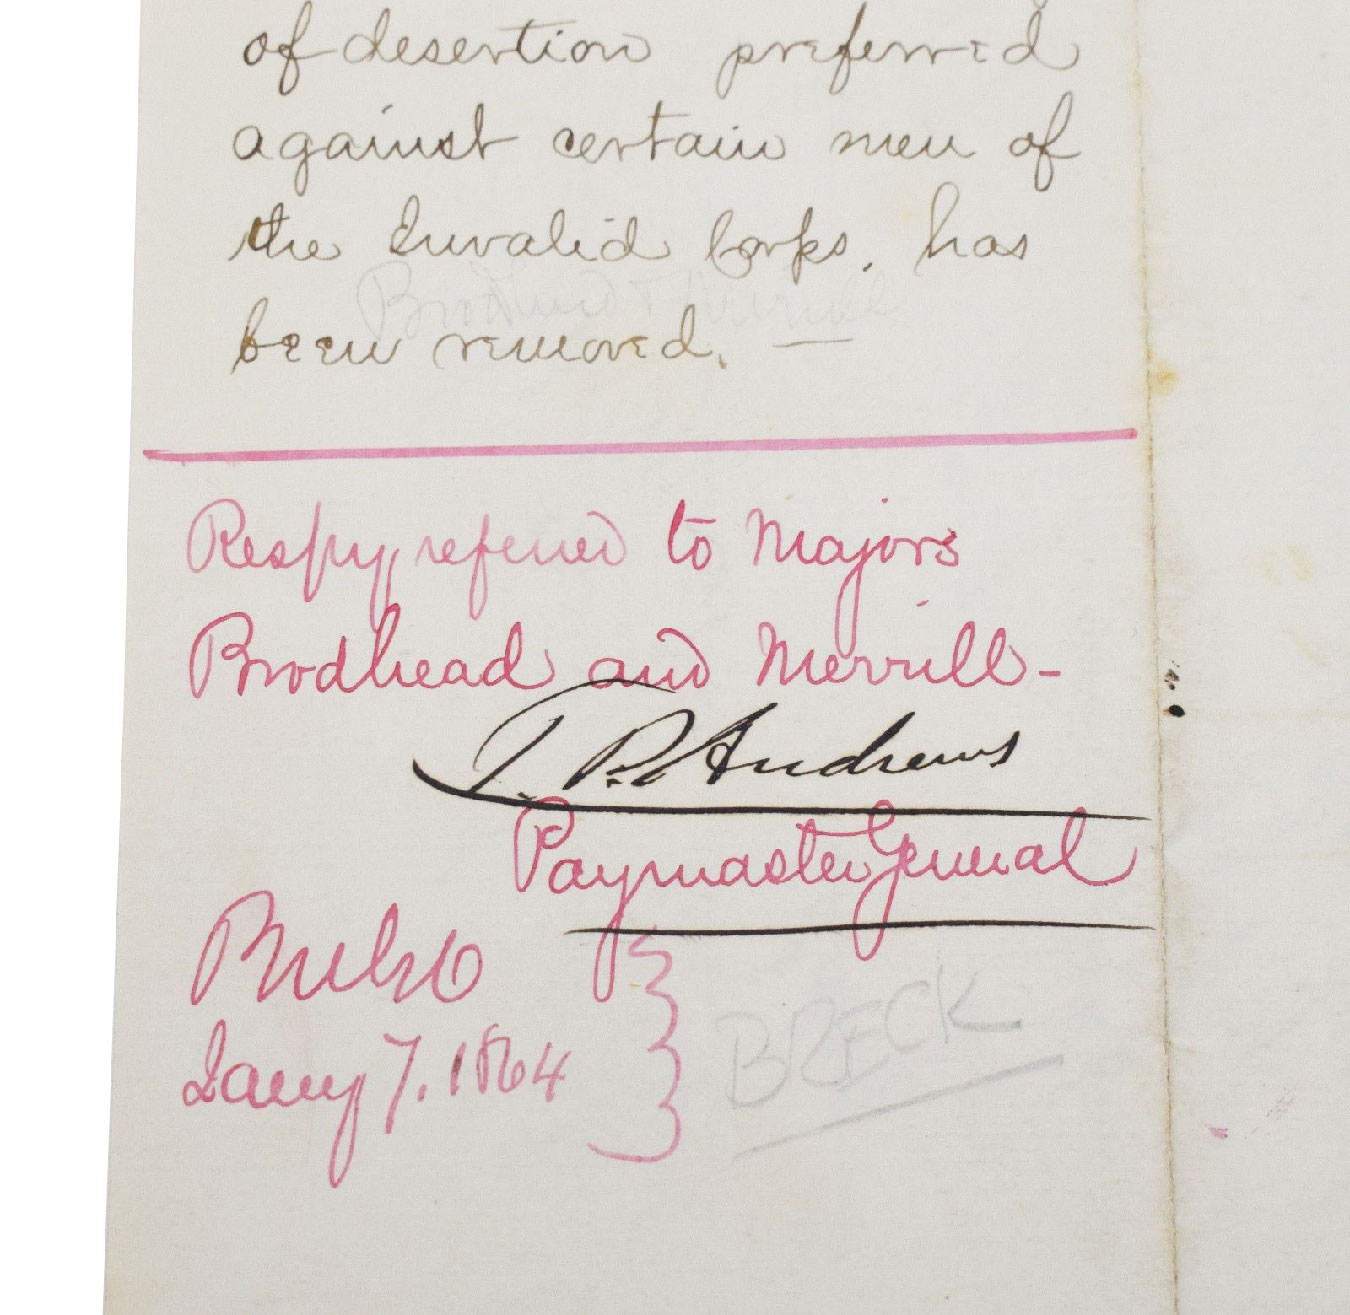 of desertion preferred
against certain men of
the Invalid Corps, has
Brodhead & Merrill
been removed. —
Respy referred to Majors
Brodhead and Merrill -
T. P. Andrews
Paymaster General
Jany 7. 1864
BRECK